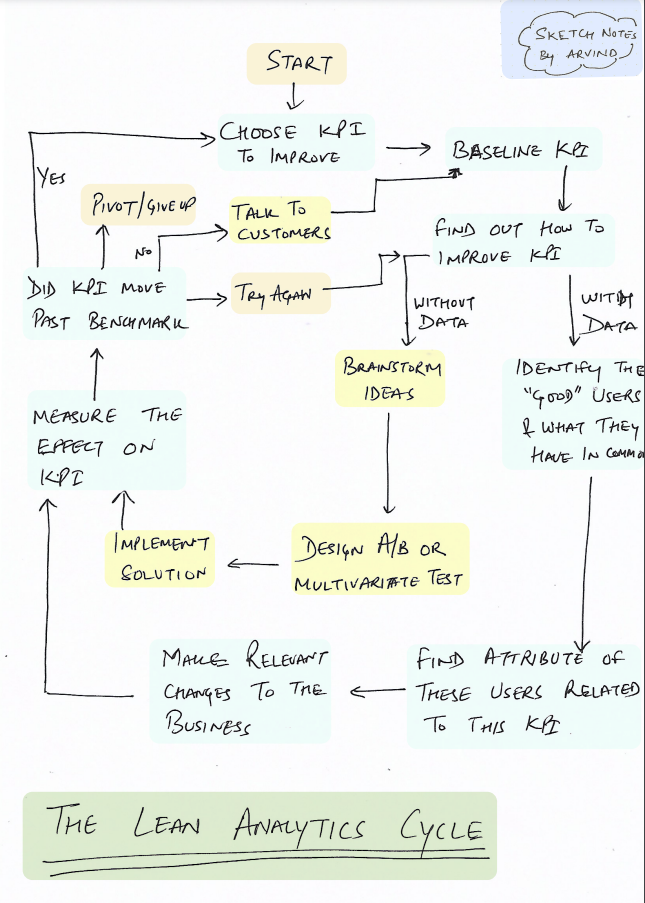 SKETCH NOTES
By ARVIND
START
CHOOSE KPI
TO IMPROVE
BASELINE KPI
YES
PIVOT/GIVEUP
TALK TO
CUSTOMERS
FIND OUT HOW TO
IMPROVE KPI
NO
DID KPI MOVE
PAST BENCHMARK
TRY AGAIN
WITHOUT
DATA
WITH
DATA
BRAINSTORM
IDEAS
IDENTIFY THE
"GOOD" USERS
& WHAT THEY
HAVE IN COMMO
MEASURE THE
EFFECT ON
KPI
IMPLEMENT
SOLUTION
DESIGN A/B OR
MULTIVARIATE TEST
MAKE RELEVANT
CHANGES TO THE
BUSINESS
FIND ATTRIBUTE OF
THESE USERS RELATED
TO THIS KPI
THE LEAN ANALYTICS CYCLE